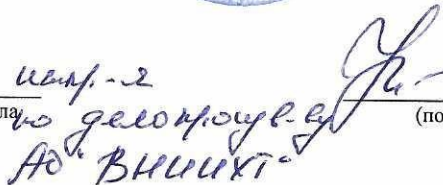 напр-я
ла по делопроизв-ву (по
АО "ВНИИХТ"